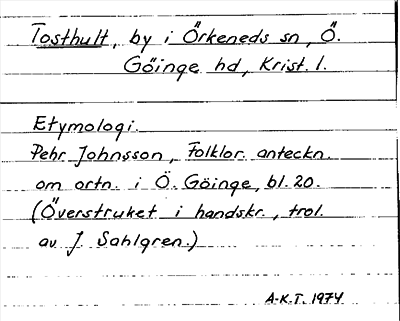 Tosthult, by i Örkeneds sn, Ö.
Göinge hd, Krist. l.
Etymologi.
Pehr Johnsson, Folklor. anteckn.
om ortn. i Ö. Göinge, bl. 20.
(Överstruket i handskr., trol.
av J. Sahlgren.)
A-K.T. 1974